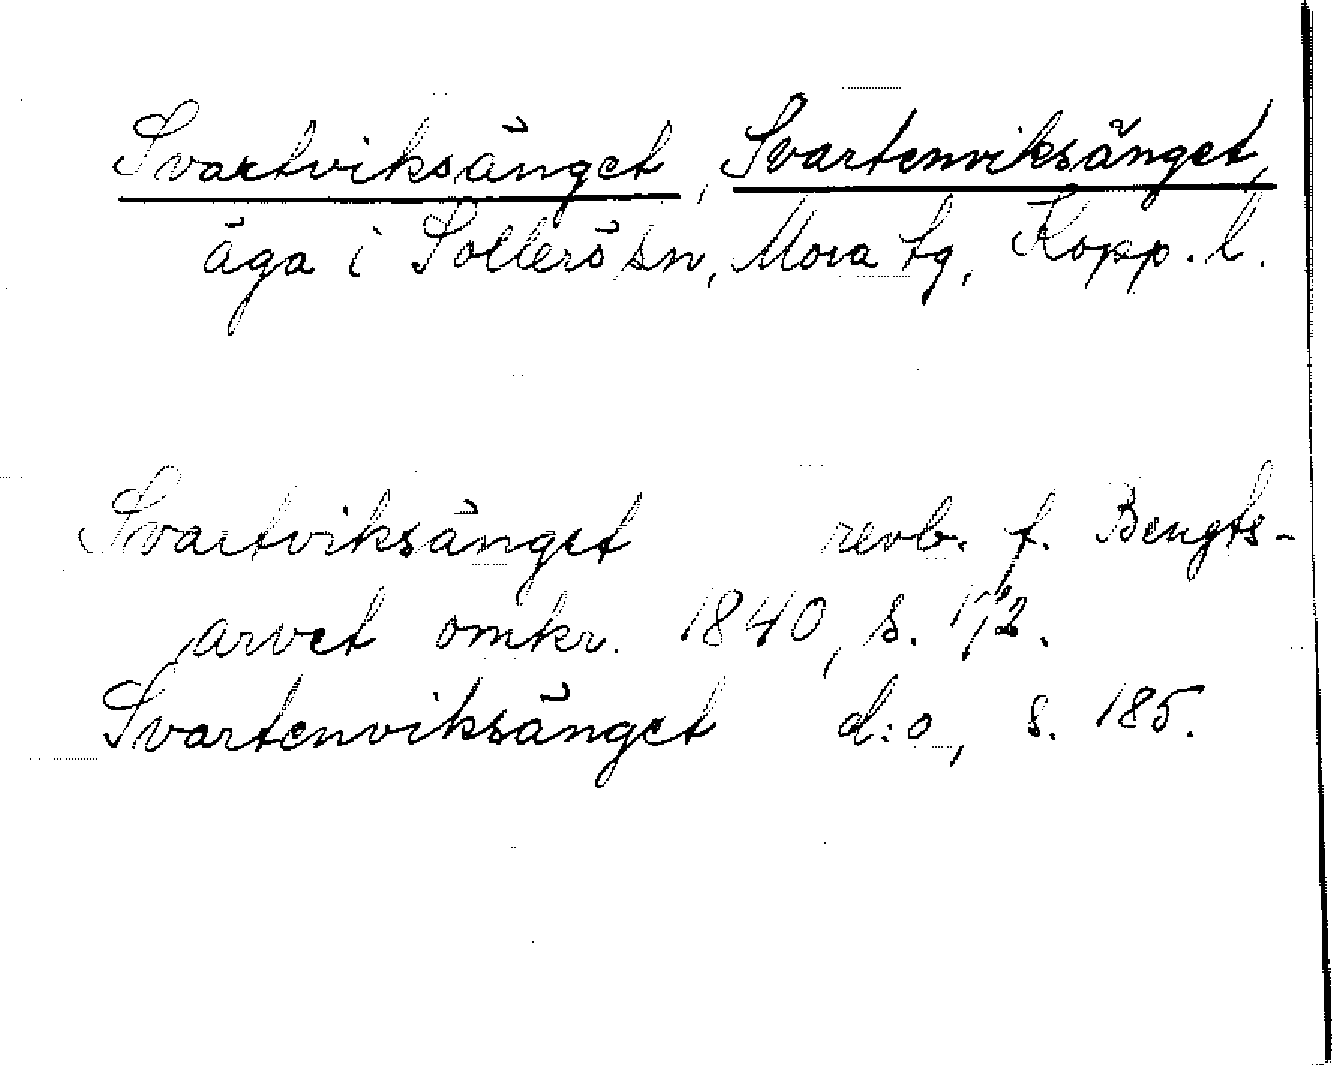 Svartviksänget, Svartenviksänget,
äga i Sollerö sn, Mora tg, Kopp. l.
Svartviksänget revb. f. Bengts-
arvet omkr. 1840, s. 172.
Svartenviksänget d:o, s. 185.